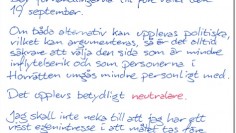 19 september.
Om båda alternativ kan upplevas politiska,
vilket kan argumenteras, så är det alltid
säkrare att välja den sida som är mindre
inflytelserik och som personerna i
Hovrätten umgås mindre personligt med.
Det upplevs betydligt neutralare.
Jag skall inte neka till att jag har ett
visst egenintresse i att målet tas före